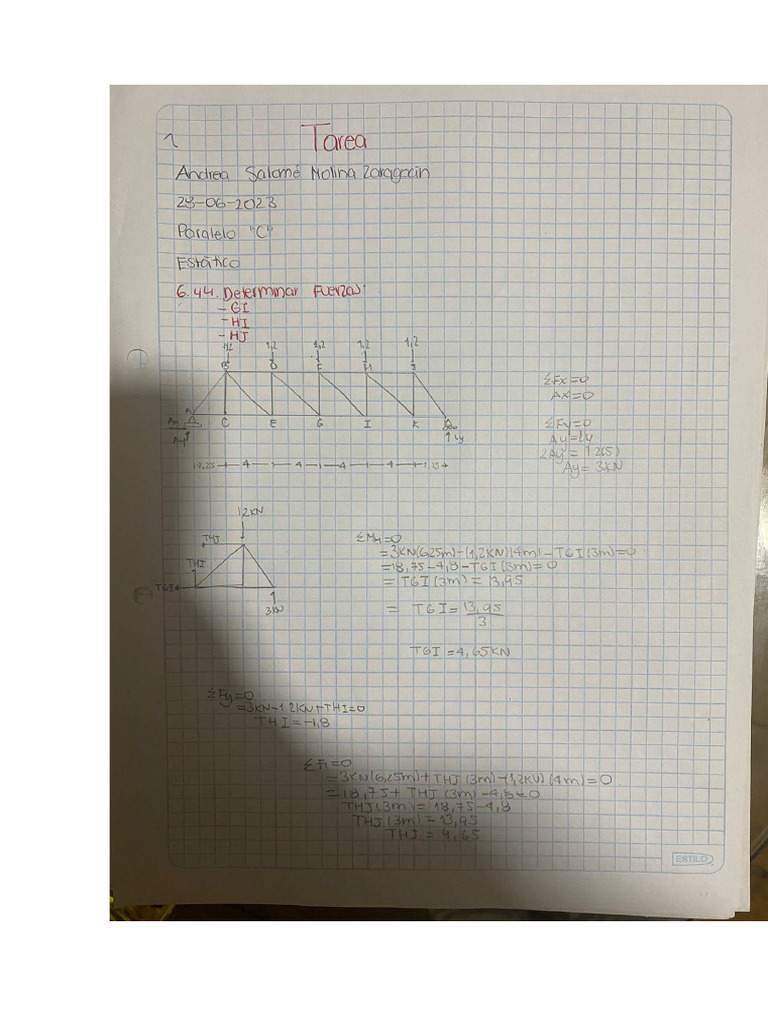 1 Tarea
Andrea Salomé Molina Zaragocin
28-06-2023
Paralelo "C"
Estático
6.44. Determinar Fuerzas:
- GI
- HI
- HJ
1,2 1,2 1,2 1,2 1,2
B D F H J
A C E G I K
Ax
Ay Ly
4 4 4 4
ΣFx=0
Ax=0
ΣFy=0
Ay=Ly
2Ay= 1,2(5)
Ay= 3KN
1,2KN
THJ
THI
TGI
3KN
ΣMH=0
=3KN(6,25m)-(1,2KN)(4m)-TGI(3m)=0
=18,75-4,8-TGI(3m)=0
=TGI(3m)=13,95
= TGI= 13,95
3
TGI=4,65KN
ΣFy=0
=3KN-1.2KN+THI=0
THI=-1,8
ΣFI=0
=3KN(6,25m)+THJ(3m)-(1,2KN)(4m)=0
=18,75+THJ(3m)-4,8=0
THJ(3m)=18,75-4,8
THJ(3m)=13,95
THJ=4,65
ESTILO